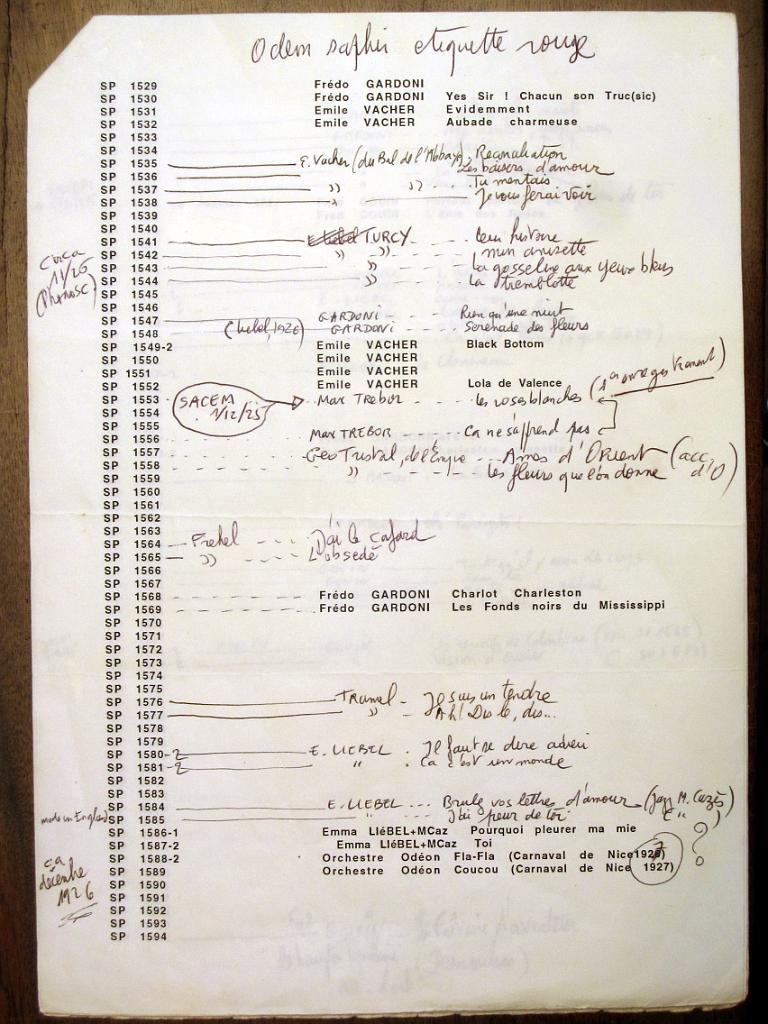 Odeon saphir etiquette rouge
SP 1529 Frédo GARDONI
SP 1530 Frédo GARDONI Yes Sir ! Chacun son Truc(sic)
SP 1531 Emile VACHER Evidemment
SP 1532 Emile VACHER Aubade charmeuse
SP 1533
SP 1534
SP 1535 E. Vacher (du Bal de l'Abbaye) Reconciliation
SP 1536 Les baisers d'amour
SP 1537 " " Tu mentais
SP 1538 " Je vous ferai voir
SP 1539
SP 1540
SP 1541 TURCY Leur histoire
circa 11/25
SP 1542 " " mon anisette
SP 1543 " La gosseline aux yeux bleus
SP 1544 " La tremblotte
SP 1545
SP 1546
SP 1547 GARDONI Rien qu'une nuit
SP 1548 GARDONI Serenade des fleurs
SP 1549-2 Emile VACHER Black Bottom
SP 1550 Emile VACHER
SP 1551 Emile VACHER
SP 1552 Emile VACHER Lola de Valence
SP 1553 SACEM 1/12/25 Max TREBOR Les roses blanches
SP 1554
SP 1555
SP 1556 Max TREBOR Ca ne s'apprend pas
SP 1557 Geo Tristal, de l'Empire Ames d'Orient (acc. d'O)
SP 1558 " Les fleurs que l'on donne
SP 1559
SP 1560
SP 1561
SP 1562
SP 1563
SP 1564 Frehel J'ai le cafard
SP 1565 " L'obsedé
SP 1566
SP 1567
SP 1568 Frédo GARDONI Charlot Charleston
SP 1569 Frédo GARDONI Les Fonds noirs du Mississippi
SP 1570
SP 1571
SP 1572
SP 1573
SP 1574
SP 1575
SP 1576 Tramel Je suis un tendre
SP 1577 " Ah! Dis le, dis...
SP 1578
SP 1579
SP 1580-2 E. LIEBEL Il faut se dire adieu
SP 1581-2 " Ca c'est un monde
SP 1582
SP 1583
SP 1584 E. LIEBEL Brule vos lettres d'amour (Jazz M. Cazès)
made in England SP 1585 " J'ai peur de toi ( " )
SP 1586-1 Emma LIéBEL+MCaz Pourquoi pleurer ma mie
SP 1587-2 Emma LIéBEL+MCaz Toi
SP 1588-2 Orchestre Odéon Fla-Fla (Carnaval de Nice1927)
SP 1589 Orchestre Odéon Coucou (Carnaval de Nice 1927) ?
ca décembre 1926
SP 1590
SP 1591
SP 1592
SP 1593
SP 1594